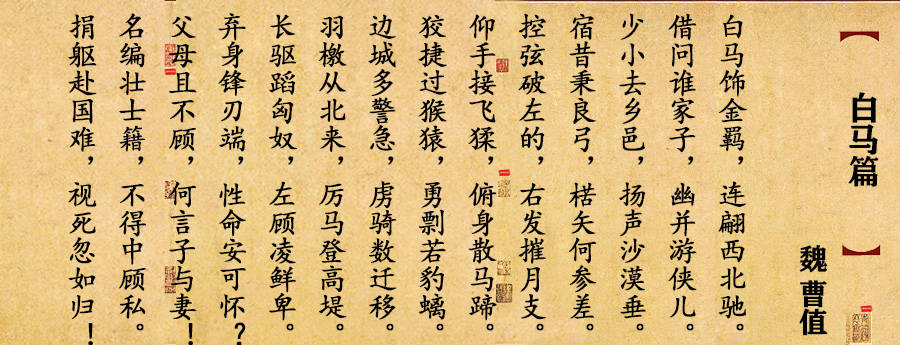 【白马篇】
魏 曹值
白马饰金羁，连翩西北驰。
借问谁家子，幽并游侠儿。
少小去乡邑，扬声沙漠垂。
宿昔秉良弓，楛矢何参差。
控弦破左的，右发摧月支。
仰手接飞猱，俯身散马蹄。
狡捷过猴猿，勇剽若豹螭。
边城多警急，虏骑数迁移。
羽檄从北来，厉马登高堤。
长驱蹈匈奴，左顾凌鲜卑。
弃身锋刃端，性命安可怀？
父母且不顾，何言子与妻！
名编壮士籍，不得中顾私。
捐躯赴国难，视死忽如归！